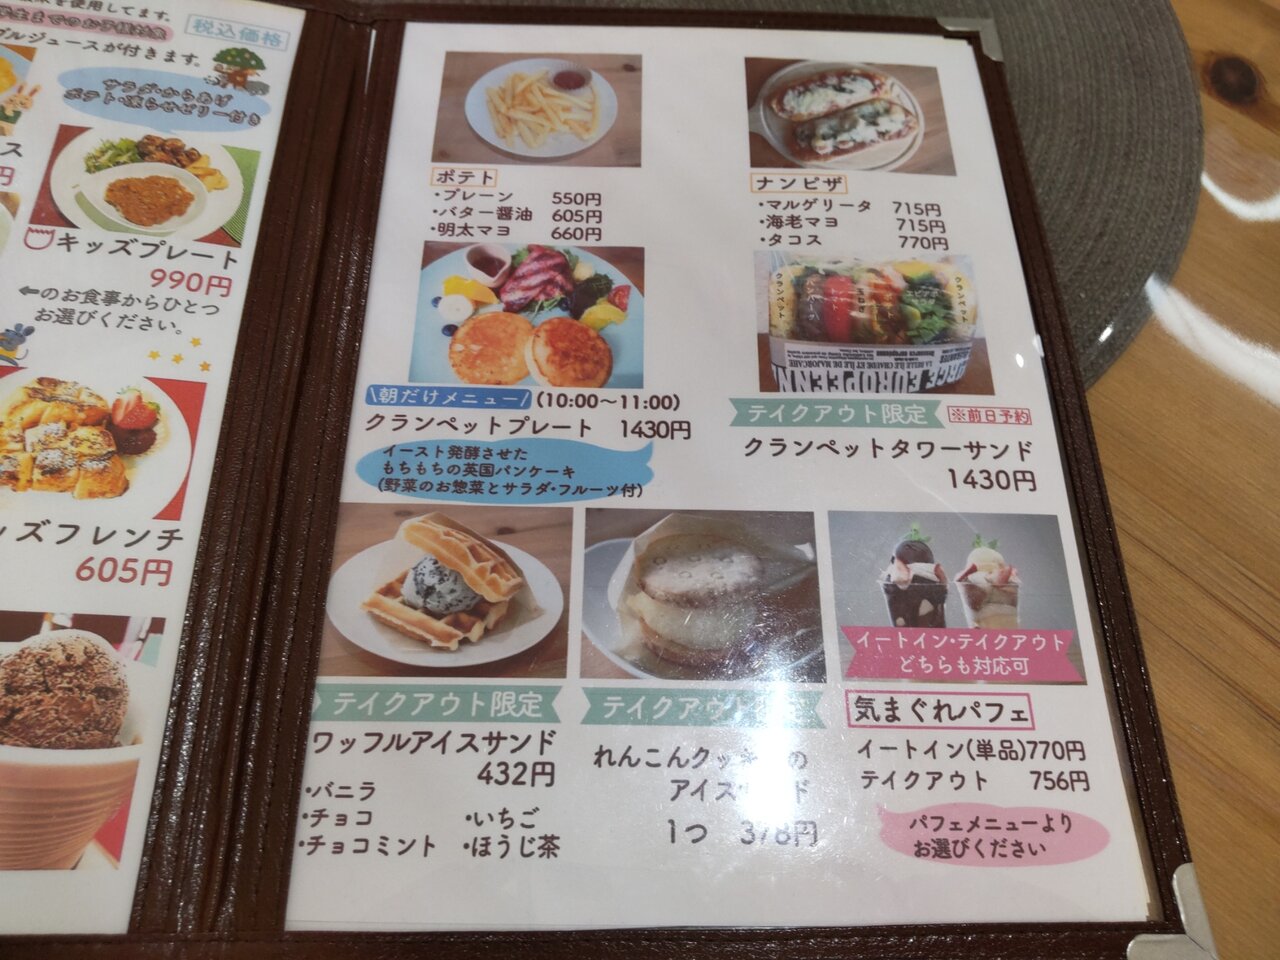 を使用してます。
生までのお子様対象
税込価格
ブルジュースが付きます。
サラダ・からあげ
ポテト・凍らせゼリー付き
ス
円
キッズプレート
990円
⬅のお食事からひとつ
お選びください。
ッズフレンチ
605円
ポテト
・プレーン 550円
・バター醤油 605円
・明太マヨ 660円
ナンピザ
・マルゲリータ 715円
・海老マヨ 715円
・タコス 770円
\朝だけメニュー/ (10:00〜11:00)
クランペットプレート 1430円
イースト発酵させた
もちもちの英国パンケーキ
(野菜のお惣菜とサラダ・フルーツ付)
クランペット
クランペット
LA BELLE ILE CHAUDE ET ILE DE MAJORCARE
RCE EUROPEENN
テイクアウト限定 ※前日予約
クランペットタワーサンド
1430円
テイクアウト限定
ワッフルアイスサンド
432円
・バニラ
・チョコ ・いちご
・チョコミント ・ほうじ茶
テイクアウ
れんこんクッキーの
アイスサンド
1つ 378円
イートイン・テイクアウト
どちらも対応可
気まぐれパフェ
イートイン(単品)770円
テイクアウト 756円
パフェメニューより
お選びください